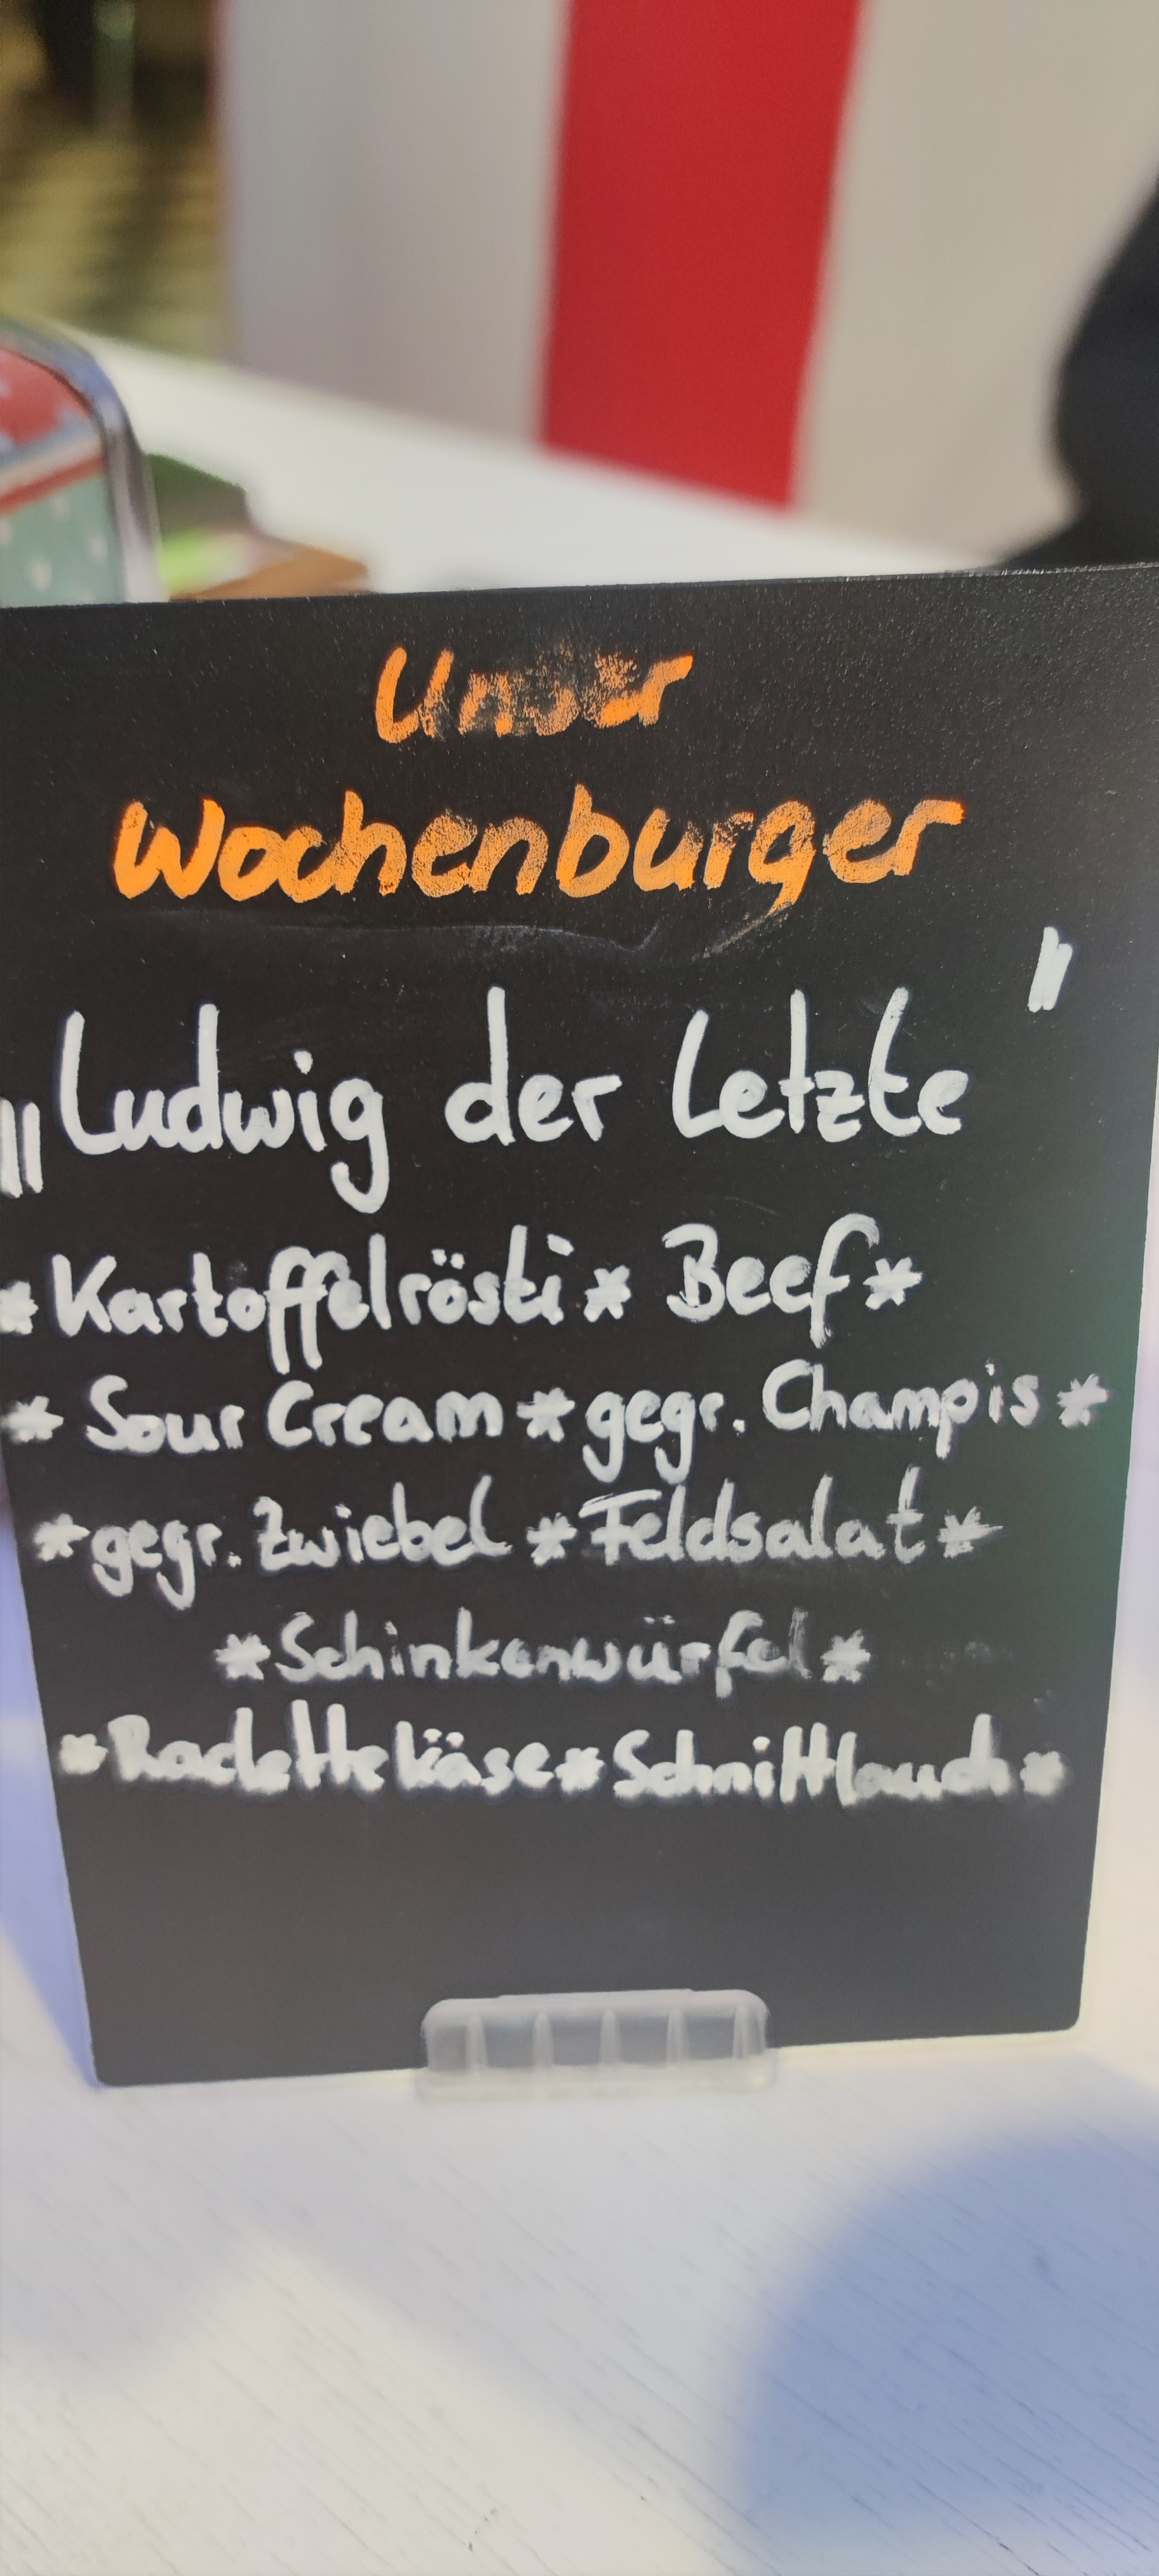 Unser
Wochenburger
„Ludwig der Letzte"
*Kartoffelrösti* Beef*
* Sour Cream * gegr. Champis *
*gegr. Zwiebel * Feldsalat *
*Schinkenwürfel*
*Raclettekäse*Schnittlauch*